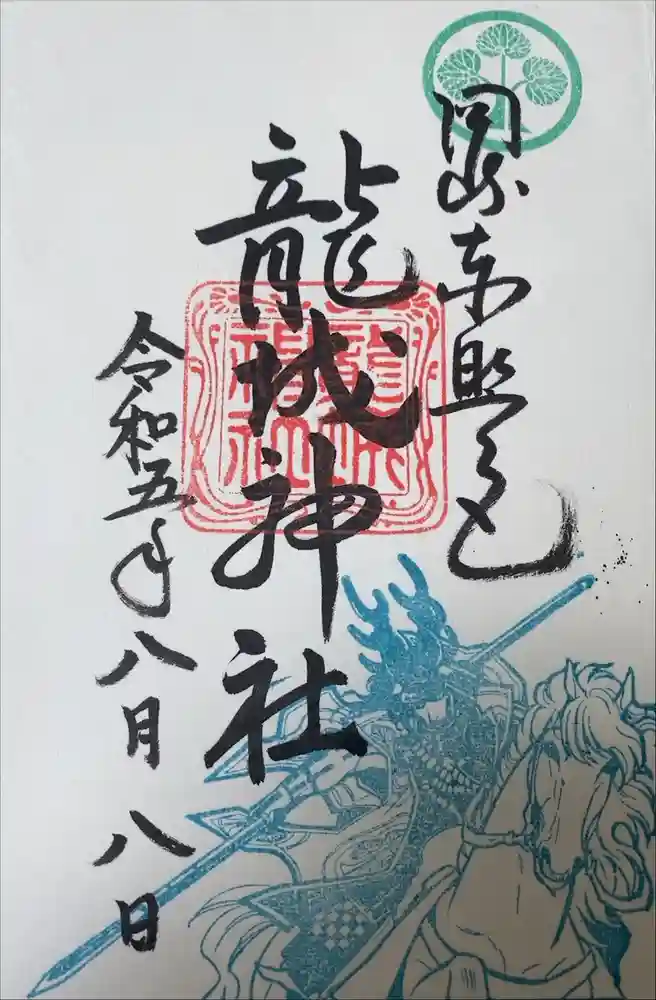 岡崎東照宮
龍城神社
令和五年八月八日
龍城
神社